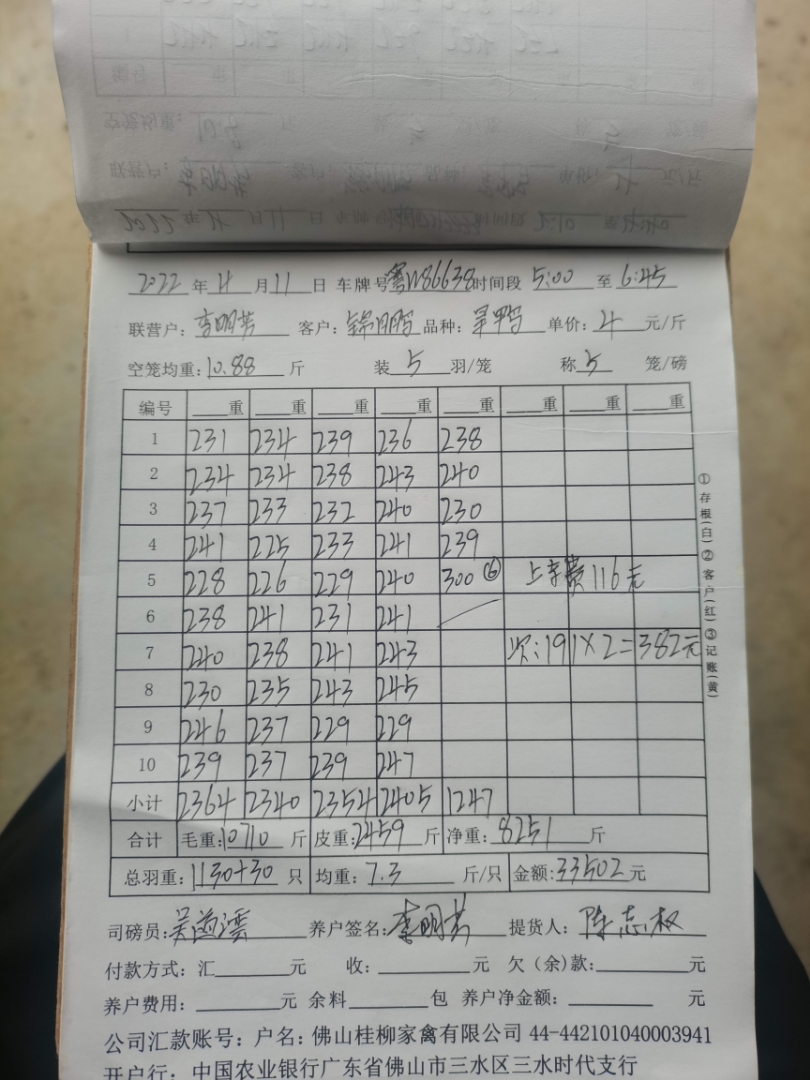 2022 年 4 月 11 日 车牌号 粤W86638 时间段 5:00 至 6:45
联营户: 李明芳 客户: 锦鹏 品种: 旱鸭 单价: 4 元/斤
空笼均重: 10.88 斤 装 5 羽/笼 称 5 笼/磅
编号 重 重 重 重 重 重 重 重
1 231 234 239 236 238
2 234 234 238 243 240
3 237 233 232 240 230
4 241 225 233 241 239
5 228 226 229 240 300 ⑥ 上车费116元
6 238 241 231 241
7 240 238 241 243 191×2=382元
8 230 235 243 245
9 246 237 229 229
10 239 237 239 247
小计 2364 2340 2354 2405 1247
合计 毛重: 10710 斤 皮重: 2459 斤 净重: 8251 斤
总羽重: 1130+30 只 均重: 7.3 斤/只 金额: 33502 元
司磅员: 吴 养户签名: 李明芳 提货人: 陈志权
付款方式: 汇 元 收: 元 欠(余)款: 元
养户费用: 元 余料 包 养户净金额: 元
公司汇款账号: 户名: 佛山桂柳家禽有限公司 44-442101040003941
开户行: 中国农业银行广东省佛山市三水区三水时代支行
①存根(白)②客户(红)③记账(黄)